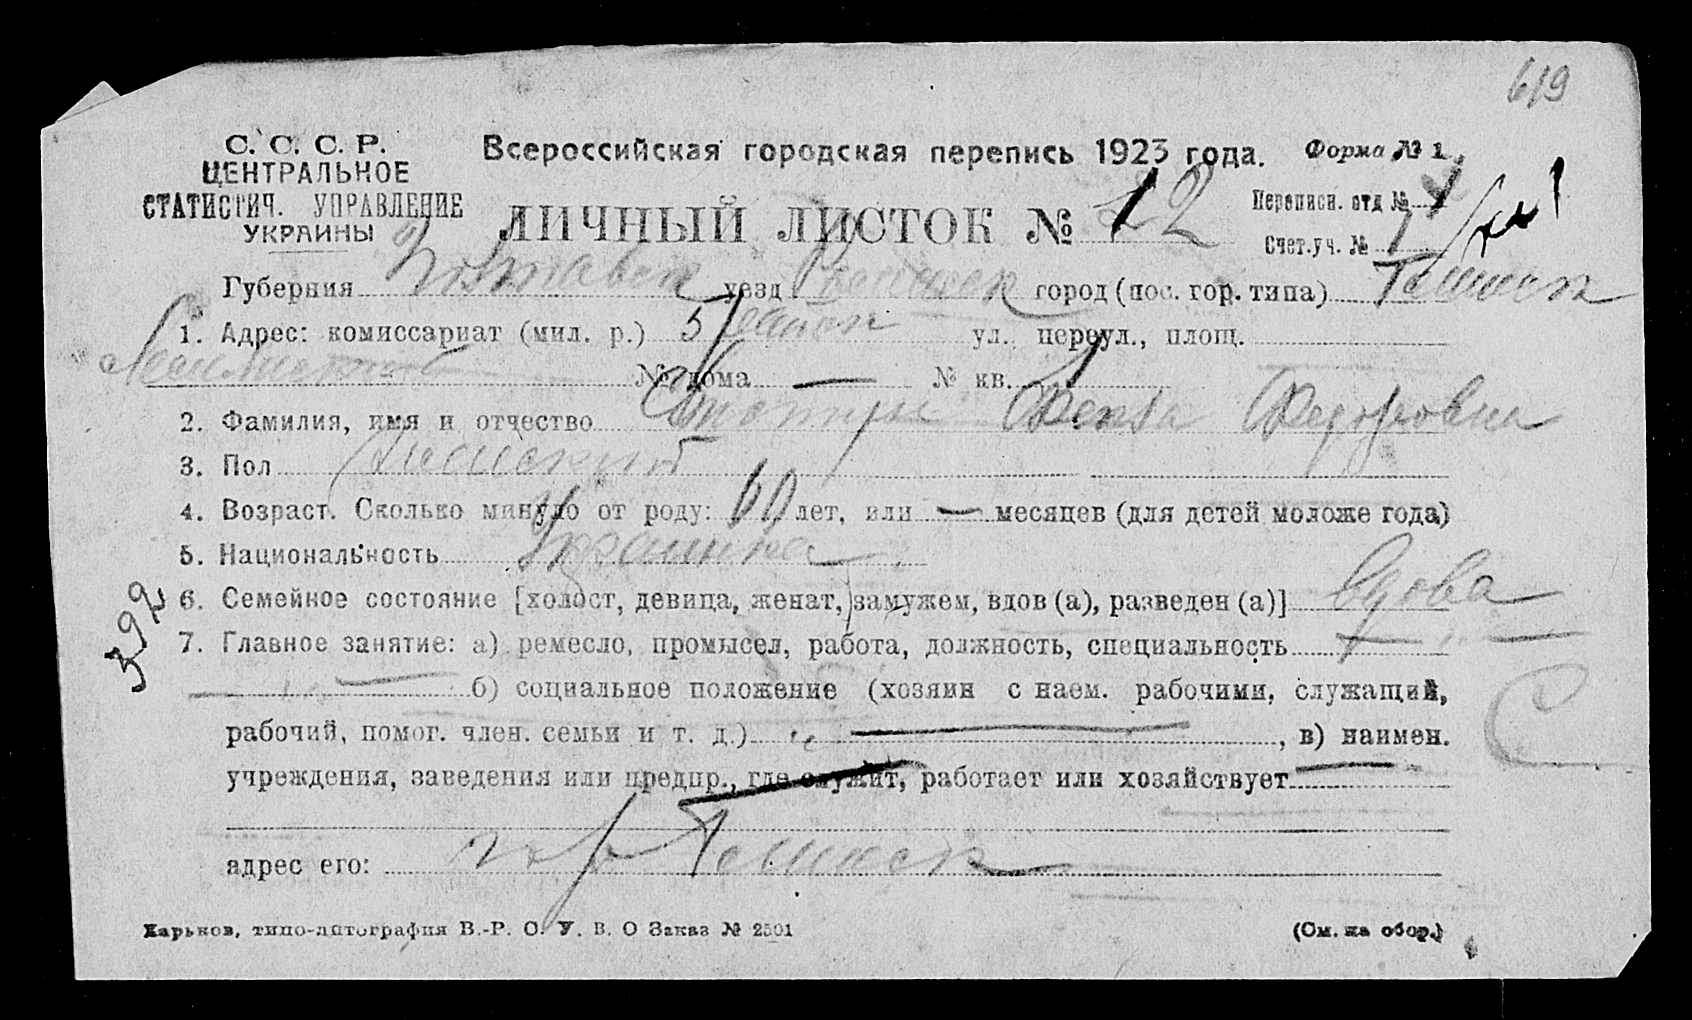 619
С. С. С. Р.
ЦЕНТРАЛЬНОЕ
СТАТИСТИЧ. УПРАВЛЕНИЕ
УКРАИНЫ
Всероссийская городская перепись 1923 года.
Форма № 1
ЛИЧНЫЙ ЛИСТОК № 12
Переписн. отд №
Счет.уч. № 1
Губерния Полтавск уезд город (пос. гор. типа)
1. Адрес: комиссариат (мил. р.) 5 ул., переул., площ.
№ дома — № кв. 1
2. Фамилия, имя и отчество Федоровна
3. Пол Женский
4. Возраст. Сколько минуло от роду: 60 лет, или — месяцев (для детей моложе года)
5. Национальность Украинка
6. Семейное состояние [холост, девица, женат, замужем, вдов (а), разведен (а)] Вдова
399
7. Главное занятие: а) ремесло, промысел, работа, должность, специальность
— б) социальное положение (хозяин с наем. рабочими, служащий,
рабочий, помог. член. семьи и т. д.) — , в) наимен.
учреждения, заведения или предпр., где служит, работает или хозяйствует —
адрес его: гор
Харьков, типо-литография В.-Р. О. У. В. О Заказ № 2501
(См. на обор.)